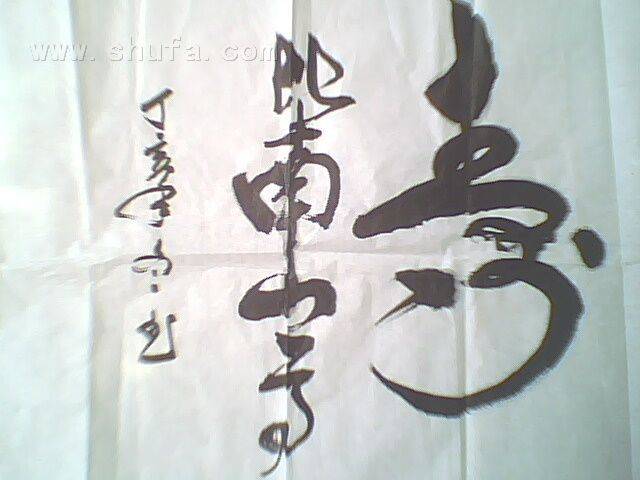 寿
比南山寿
丁亥年冬书
www.shufa.com